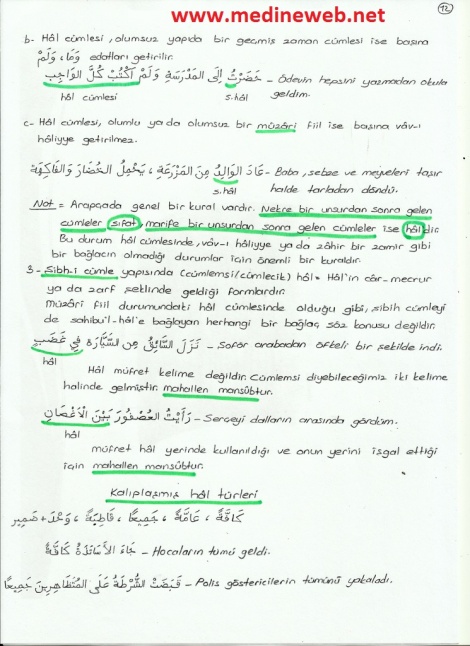 www.medineweb.net
12
b- Hâl cümlesi, olumsuz yapıda bir geçmiş zaman cümlesi ise başına
وَمَا، وَلَمْ edatları getirilir.
حَضَرْتُ إِلَى الْمَدْرَسَةِ وَلَمْ أَكْتُبْ كُلَّ الْوَاجِبِ - Ödevin hepsini yazmadan okula
hâl cümlesi s.hâl geldim.
c- Hâl cümlesi, olumlu ya da olumsuz bir müzâri fiil ise başına vâv-ı
hâliyye getirilmez.
عَادَ الْوَالِدُ مِنَ الْمَزْرَعَةِ، يَحْمِلُ الْخُضَارَ وَالْفَاكِهَةَ - Baba, sebze ve meyveleri taşır
s.hâl halde tarladan döndü.
Not = Arapçada genel bir kural vardır. Nekre bir unsurdan sonra gelen
cümleler sıfat, marife bir unsurdan sonra gelen cümleler ise hâldir.
Bu durum hâl cümlesinde, vâv-ı hâliyye ya da zâhir bir zamir gibi
bir bağlacın olmadığı durumlar için önemli bir kuraldır.
3- Şibh-i cümle yapısında (cümlemsi/cümlecik) hâl = Hâl'in câr-mecrur
ya da zarf şeklinde geldiği formlardır.
Müzâri fiil durumundaki hâl cümlesinde olduğu gibi, şibih cümleyi
de sahibu'l-hâl'e bağlayan herhangi bir bağlaç söz konusu değildir.
نَزَلَ السَّائِقُ مِنَ السَّيَّارَةِ فِي غَضَبٍ - Şoför arabadan öfkeli bir şekilde indi.
hâl
Hâl müfret kelime değildir. Cümlemsi diyebileceğimiz iki kelime
halinde gelmiştir. mahallen mansûbtur.
رَأَيْتُ الْعُصْفُورَ بَيْنَ الْأَغْصَانِ - Serçeyi dalların arasında gördüm.
hâl
müfret hâl yerinde kullanıldığı ve onun yerini işgal ettiği
için mahallen mansûbtur.
Kalıplaşmış hâl türleri
كَافَّةً ، عَامَّةً ، جَمِيعًا ، قَاطِبَةً ، وَحْدَ + ضَمِير
جَاءَ الْأَسَاتِذَةُ كَافَّةً - Hocaların tümü geldi.
قَبَضَتْ الشُّرْطَةُ عَلَى الْمُتَظَاهِرِينَ جَمِيعًا - Polis göstericilerin tümünü yakaladı.